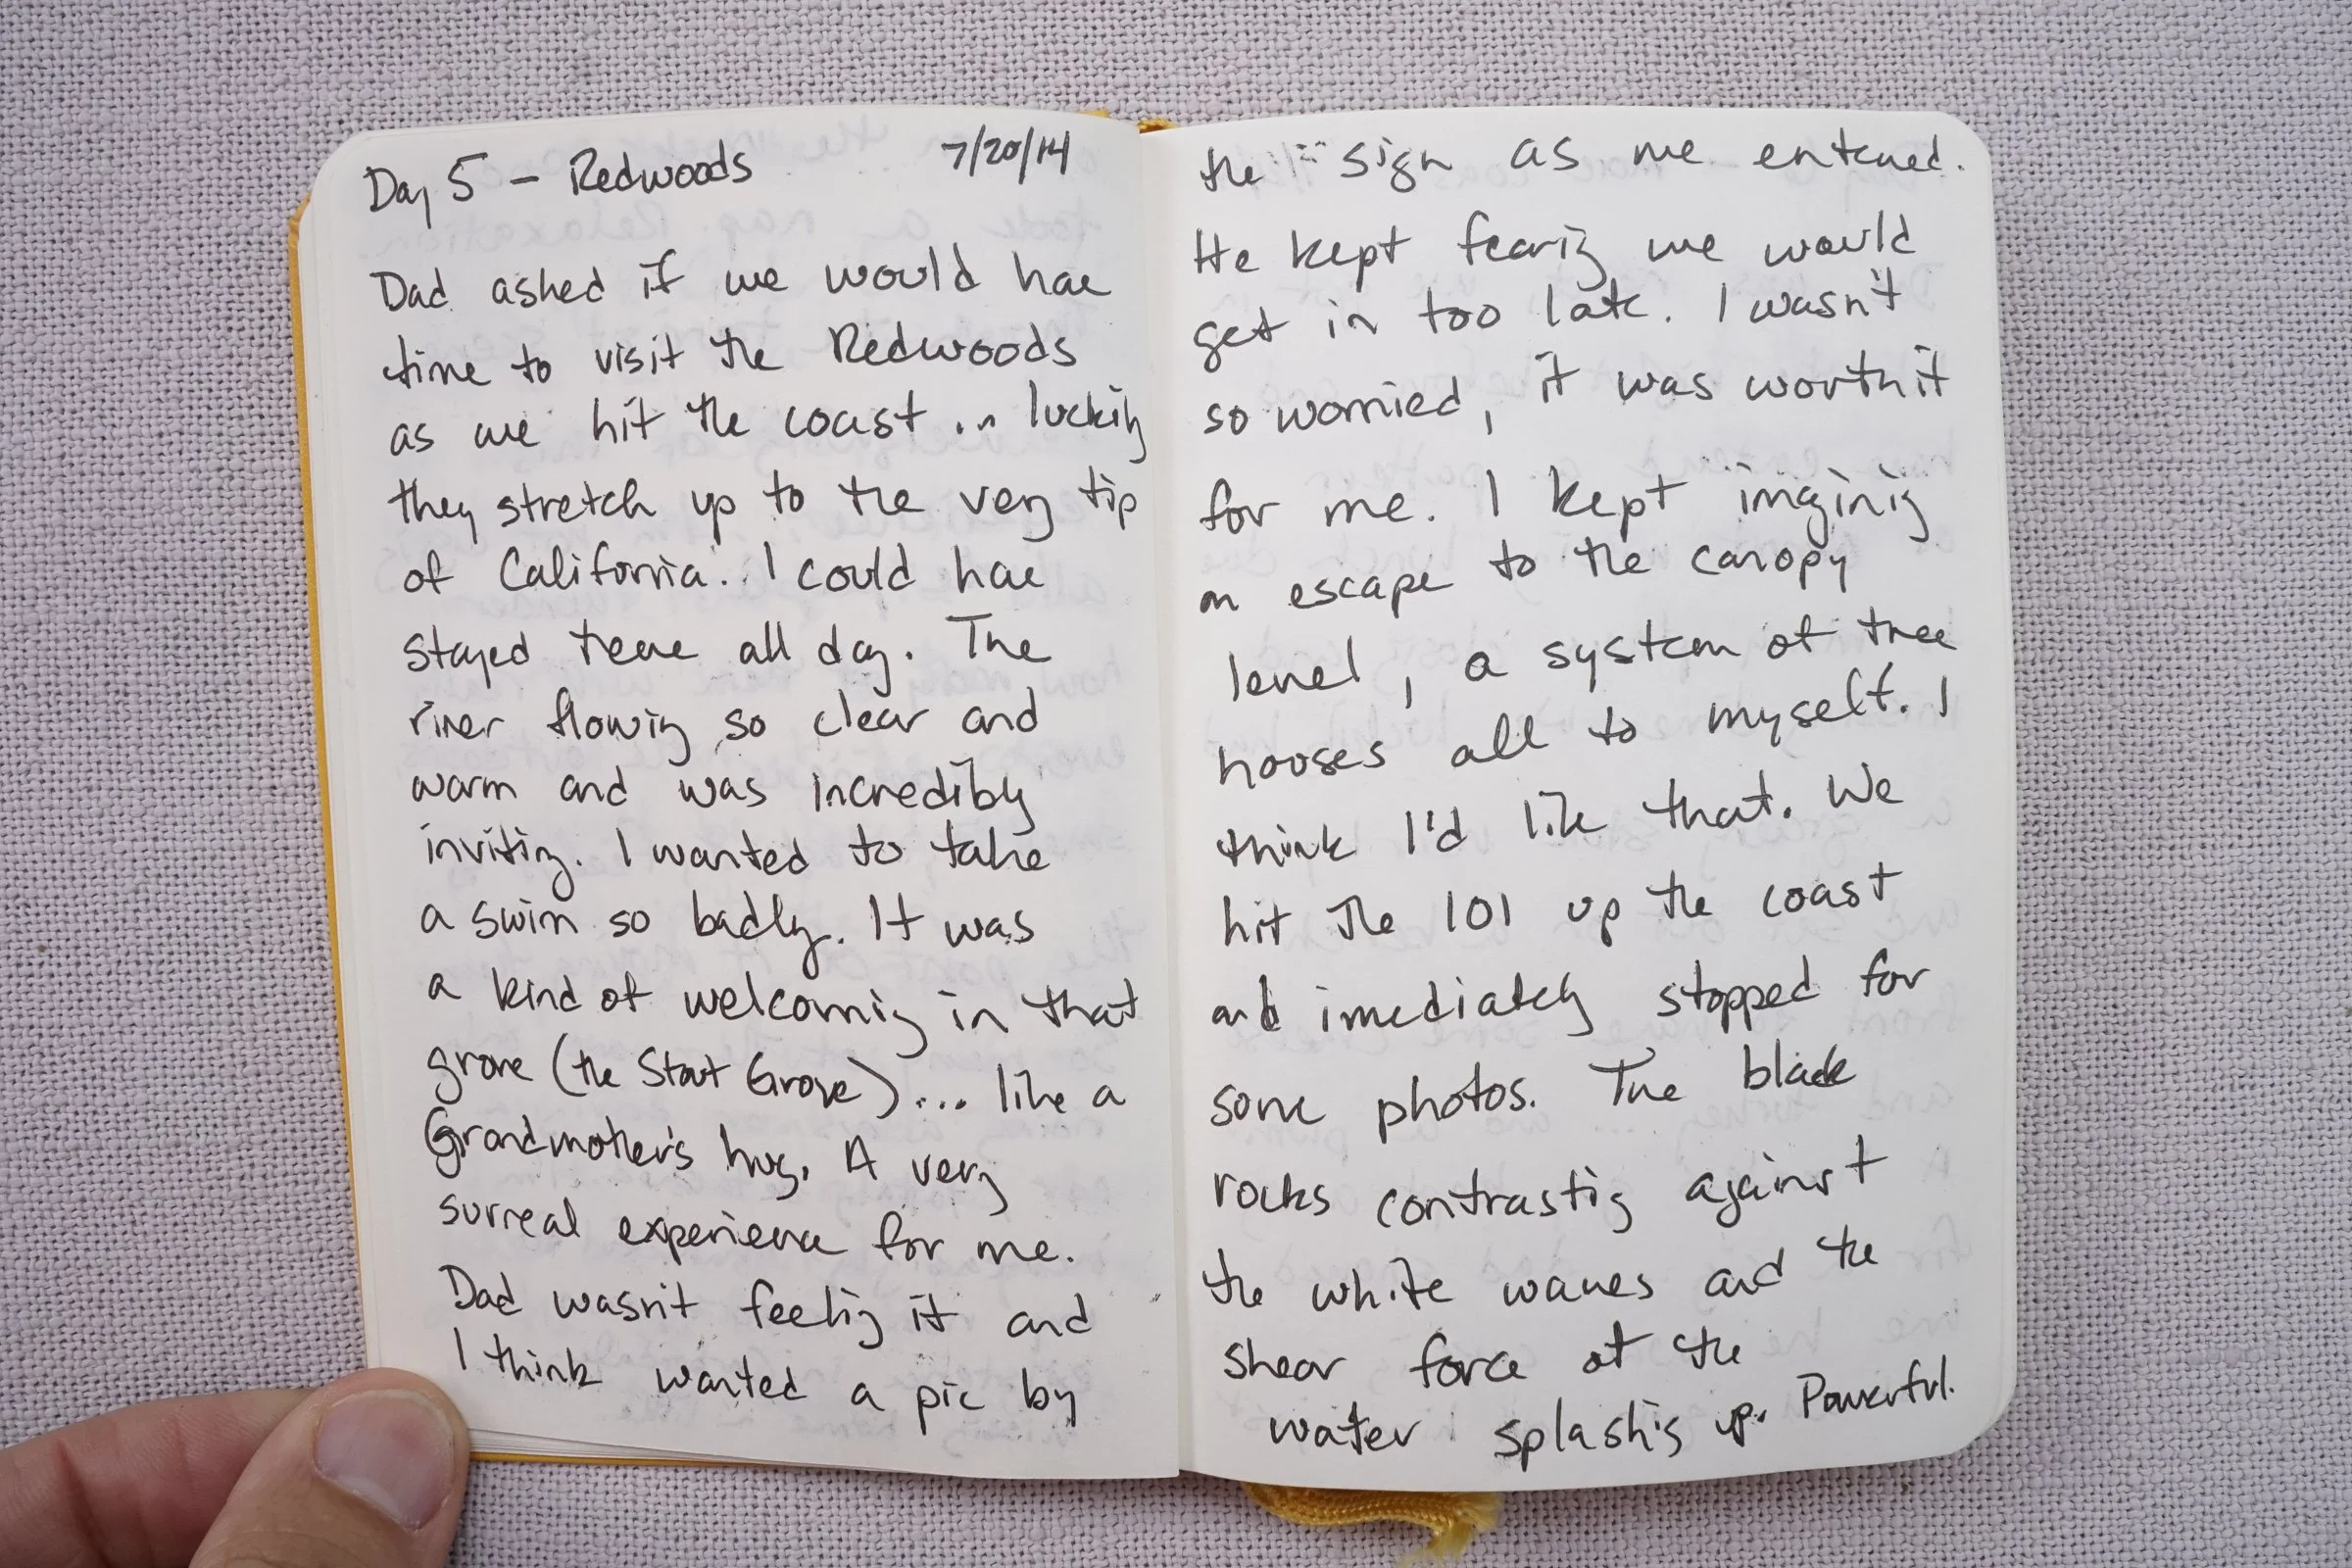 Day 5 - Redwoods 7/20/14
Dad asked if we would hae
time to visit the Redwoods
as we hit the coast ... luckily
they stretch up to the very tip
of California. I could hae
stayed there all day. The
river flowing so clear and
warm and was incredibly
inviting. I wanted to take
a swim so badly. It was
a kind of welcoming in that
grove (the Stout Grove)... like a
Grandmother's hug. A very
surreal experience for me.
Dad wasn't feeling it and
I think wanted a pic by
the sign as we entered.
He kept fearing we would
get in too late. I wasn't
so worried, it was worth it
for me. I kept imagining
an escape to the canopy
level, a system of tree
houses all to myself. I
think I'd like that. We
hit the 101 up the coast
and imediately stopped for
some photos. The black
rocks contrasting against
the white waves and the
shear force of the
water splashing up. Powerful.